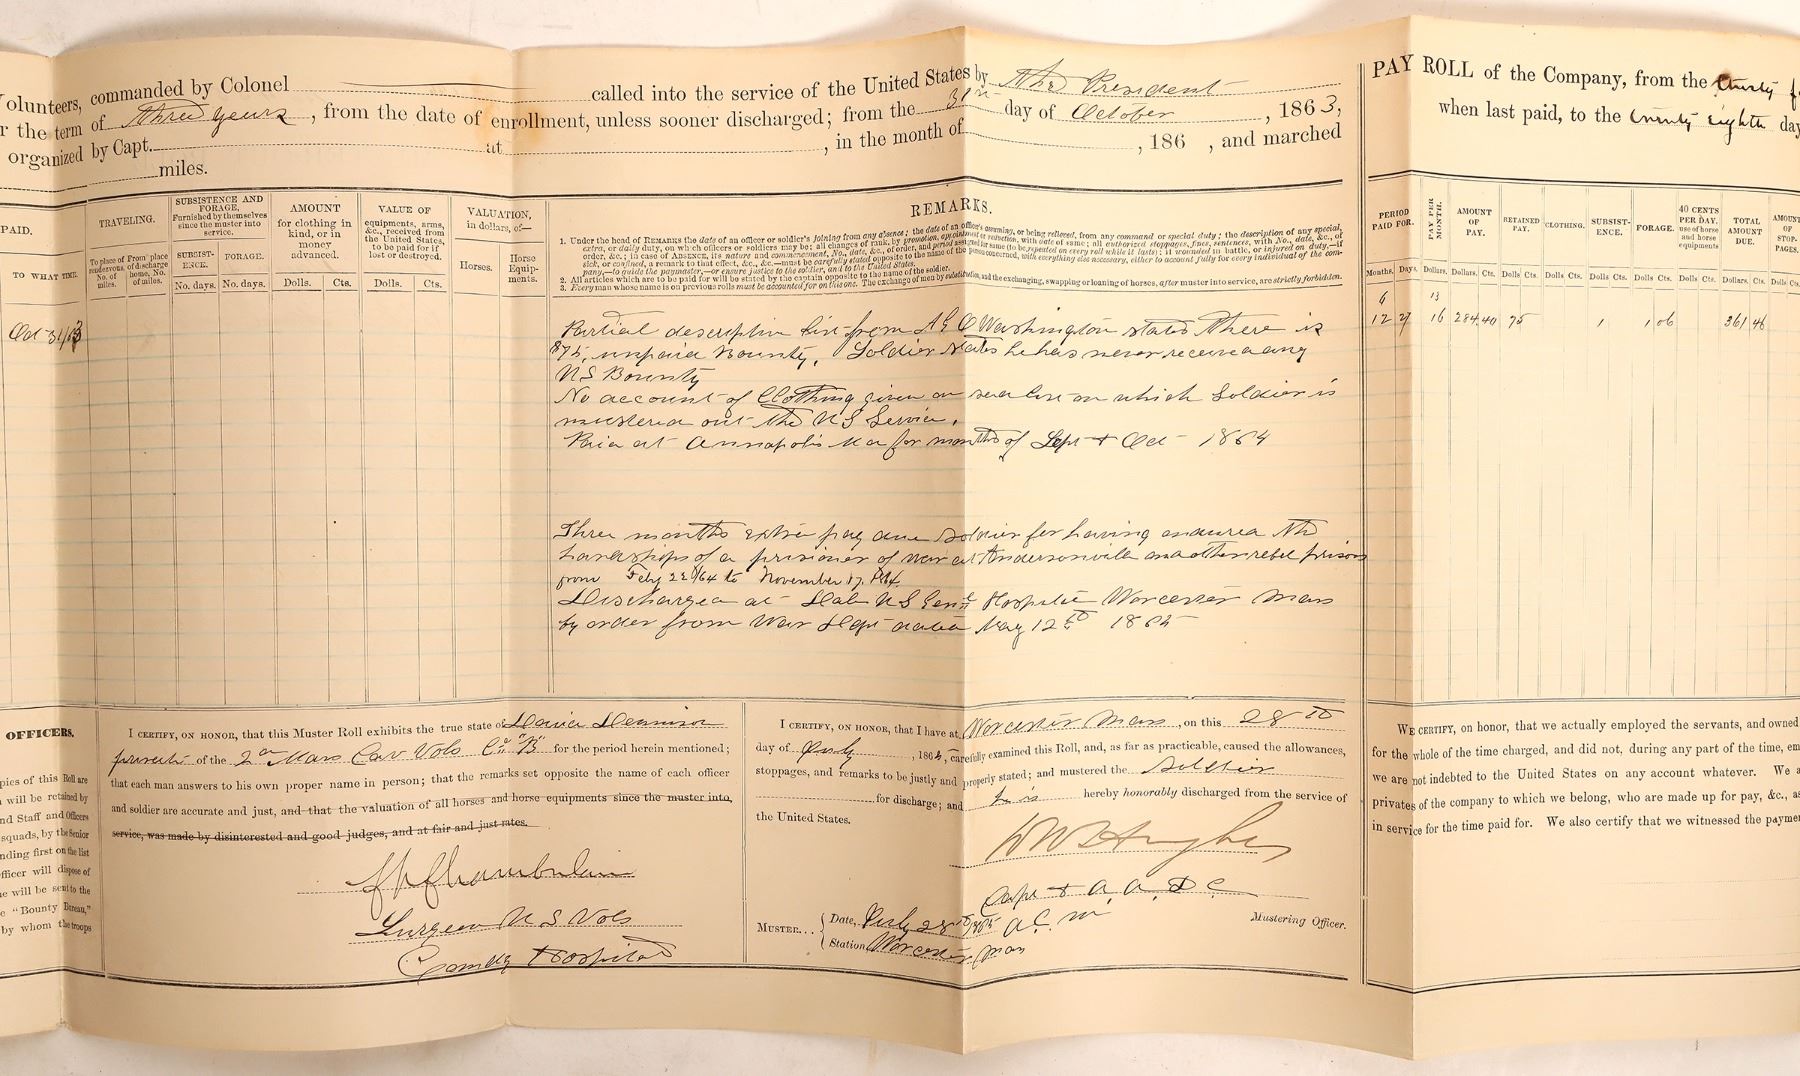 Volunteers, commanded by Colonel called into the service of the United States by The President
r the term of three years, from the date of enrollment, unless sooner discharged; from the 31st day of October, 1863,
organized by Capt. at , in the month of , 186 , and marched
miles.
PAY ROLL of the Company, from the thirty f
when last paid, to the twenty eighth day
PAID.
TO WHAT TIME.
TRAVELING.
To place of rendezvous, No. of miles.
From place of discharge home, No. of miles.
SUBSISTENCE AND FORAGE,
Furnished by themselves since the muster into service.
SUBSISTENCE.
FORAGE.
No. days.
No. days.
AMOUNT
for clothing in kind, or in money advanced.
Dolls. Cts.
VALUE OF
equipments, arms, &c., received from the United States, to be paid for if lost or destroyed.
Dolls. Cts.
VALUATION,
in dollars, of—
Horses.
Horse Equipments.
REMARKS.
1. Under the head of REMARKS the date of an officer or soldier's joining from any absence; the date of an officer's assuming, or being relieved, from any command or special duty; the description of any special,
extra, or daily duty, on which officers or soldiers may be; all changes of rank, by promotion, appointment or reduction, with date of same; all authorized stoppages, fines, sentences, with No., date, &c., of
order, &c.; in case of ABSENCE, its nature and commencement, No., date, &c., of order, and period assigned for same (to be repeated on every roll while it lasts); if wounded in battle, or injured on duty,—if
sick, or confined, a remark to that effect, &c., &c.—must be carefully stated opposite to the name of the person concerned, with everything else necessary, either to account fully for every individual of the com-
pany,—to guide the paymaster,—or ensure justice to the soldier, and to the United States.
2. All articles which are to be paid for will be stated by the captain opposite to the name of the soldier.
3. Every man whose name is on previous rolls must be accounted for on this one. The exchange of men by substitution, and the exchanging, swapping or loaning of horses, after muster into service, are strictly forbidden.
PERIOD PAID FOR.
Months. Days.
PAY PER MONTH.
Dollars.
AMOUNT OF PAY.
Dollars. Cts.
RETAINED PAY.
Dolls Cts.
CLOTHING.
Dolls Cts.
SUBSISTENCE.
Dolls Cts.
FORAGE.
Dolls Cts.
40 CENTS PER DAY, use of horse and horse equipments
Dolls Cts.
TOTAL AMOUNT DUE.
Dollars. Cts.
AMOUNT OF STOPPAGES.
Dolls Cts
6 13
Oct 31/63
12 27 16 284.40 75 1 1 06 361 46
Partial descriptive list from A G O Washington states There is
$75, unpaid Bounty. Soldier states he has never received any
U S Bounty
No account of Clothing given on desc list on which Soldier is
mustered out the U S Service.
Paid at Annapolis Md for months of Sept & Oct 1864
Three months extra pay due soldier for having endured the
hardships of a prisioner of war at Andersonville and other rebel prisons
from Feby 22d/64 to November 17, 1864
Discharged at Dale U S Genl Hospital Worcester Mass
by order from War Dept dated May 12th 1865
OFFICERS.
pies of this Roll are
n will be retained by
nd Staff and Officers
squads, by the Senior
nding first on the list
fficer will dispose of
ne will be sent to the
e "Bounty Bureau,"
by whom the troops
I CERTIFY, ON HONOR, that this Muster Roll exhibits the true state of David Dennison
private of the 2nd Mass Cav Vols Co "B" for the period herein mentioned;
that each man answers to his own proper name in person; that the remarks set opposite the name of each officer
and soldier are accurate and just, and that the valuation of all horses and horse equipments since the muster into,
service, was made by disinterested and good judges, and at fair and just rates.
Chamberlain
Surgeon U S Vols
Comdg Hospital
I CERTIFY, ON HONOR, that I have at Worcester Mass, on this 28th
day of July, 1865, carefully examined this Roll, and, as far as practicable, caused the allowances,
stoppages, and remarks to be justly and properly stated; and mustered the Soldier
for discharge; and he is hereby honorably discharged from the service of
the United States.
Hughes
Capt & A. A. D. C.
A. C. M
Mustering Officer.
MUSTER... Date, July 28th 1865
Station Worcester Mass
WE CERTIFY, on honor, that we actually employed the servants, and owned
for the whole of the time charged, and did not, during any part of the time, em
we are not indebted to the United States on any account whatever. We a
privates of the company to which we belong, who are made up for pay, &c., as
in service for the time paid for. We also certify that we witnessed the payme